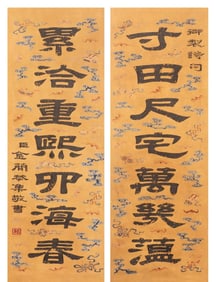 御製詩句
寸田尺宅萬蘊
累洽重熙卯海春
臣金敬書